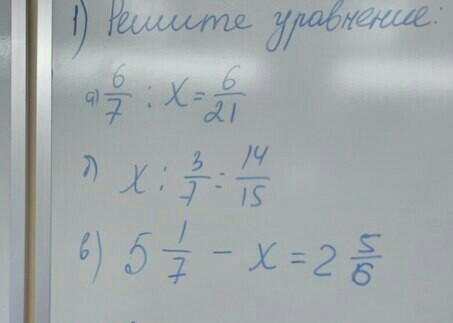 1) Решите уравнение:
а) 6/7 : x = 6/21
б) x : 3/7 = 14/15
в) 5 1/7 - x = 2 5/6